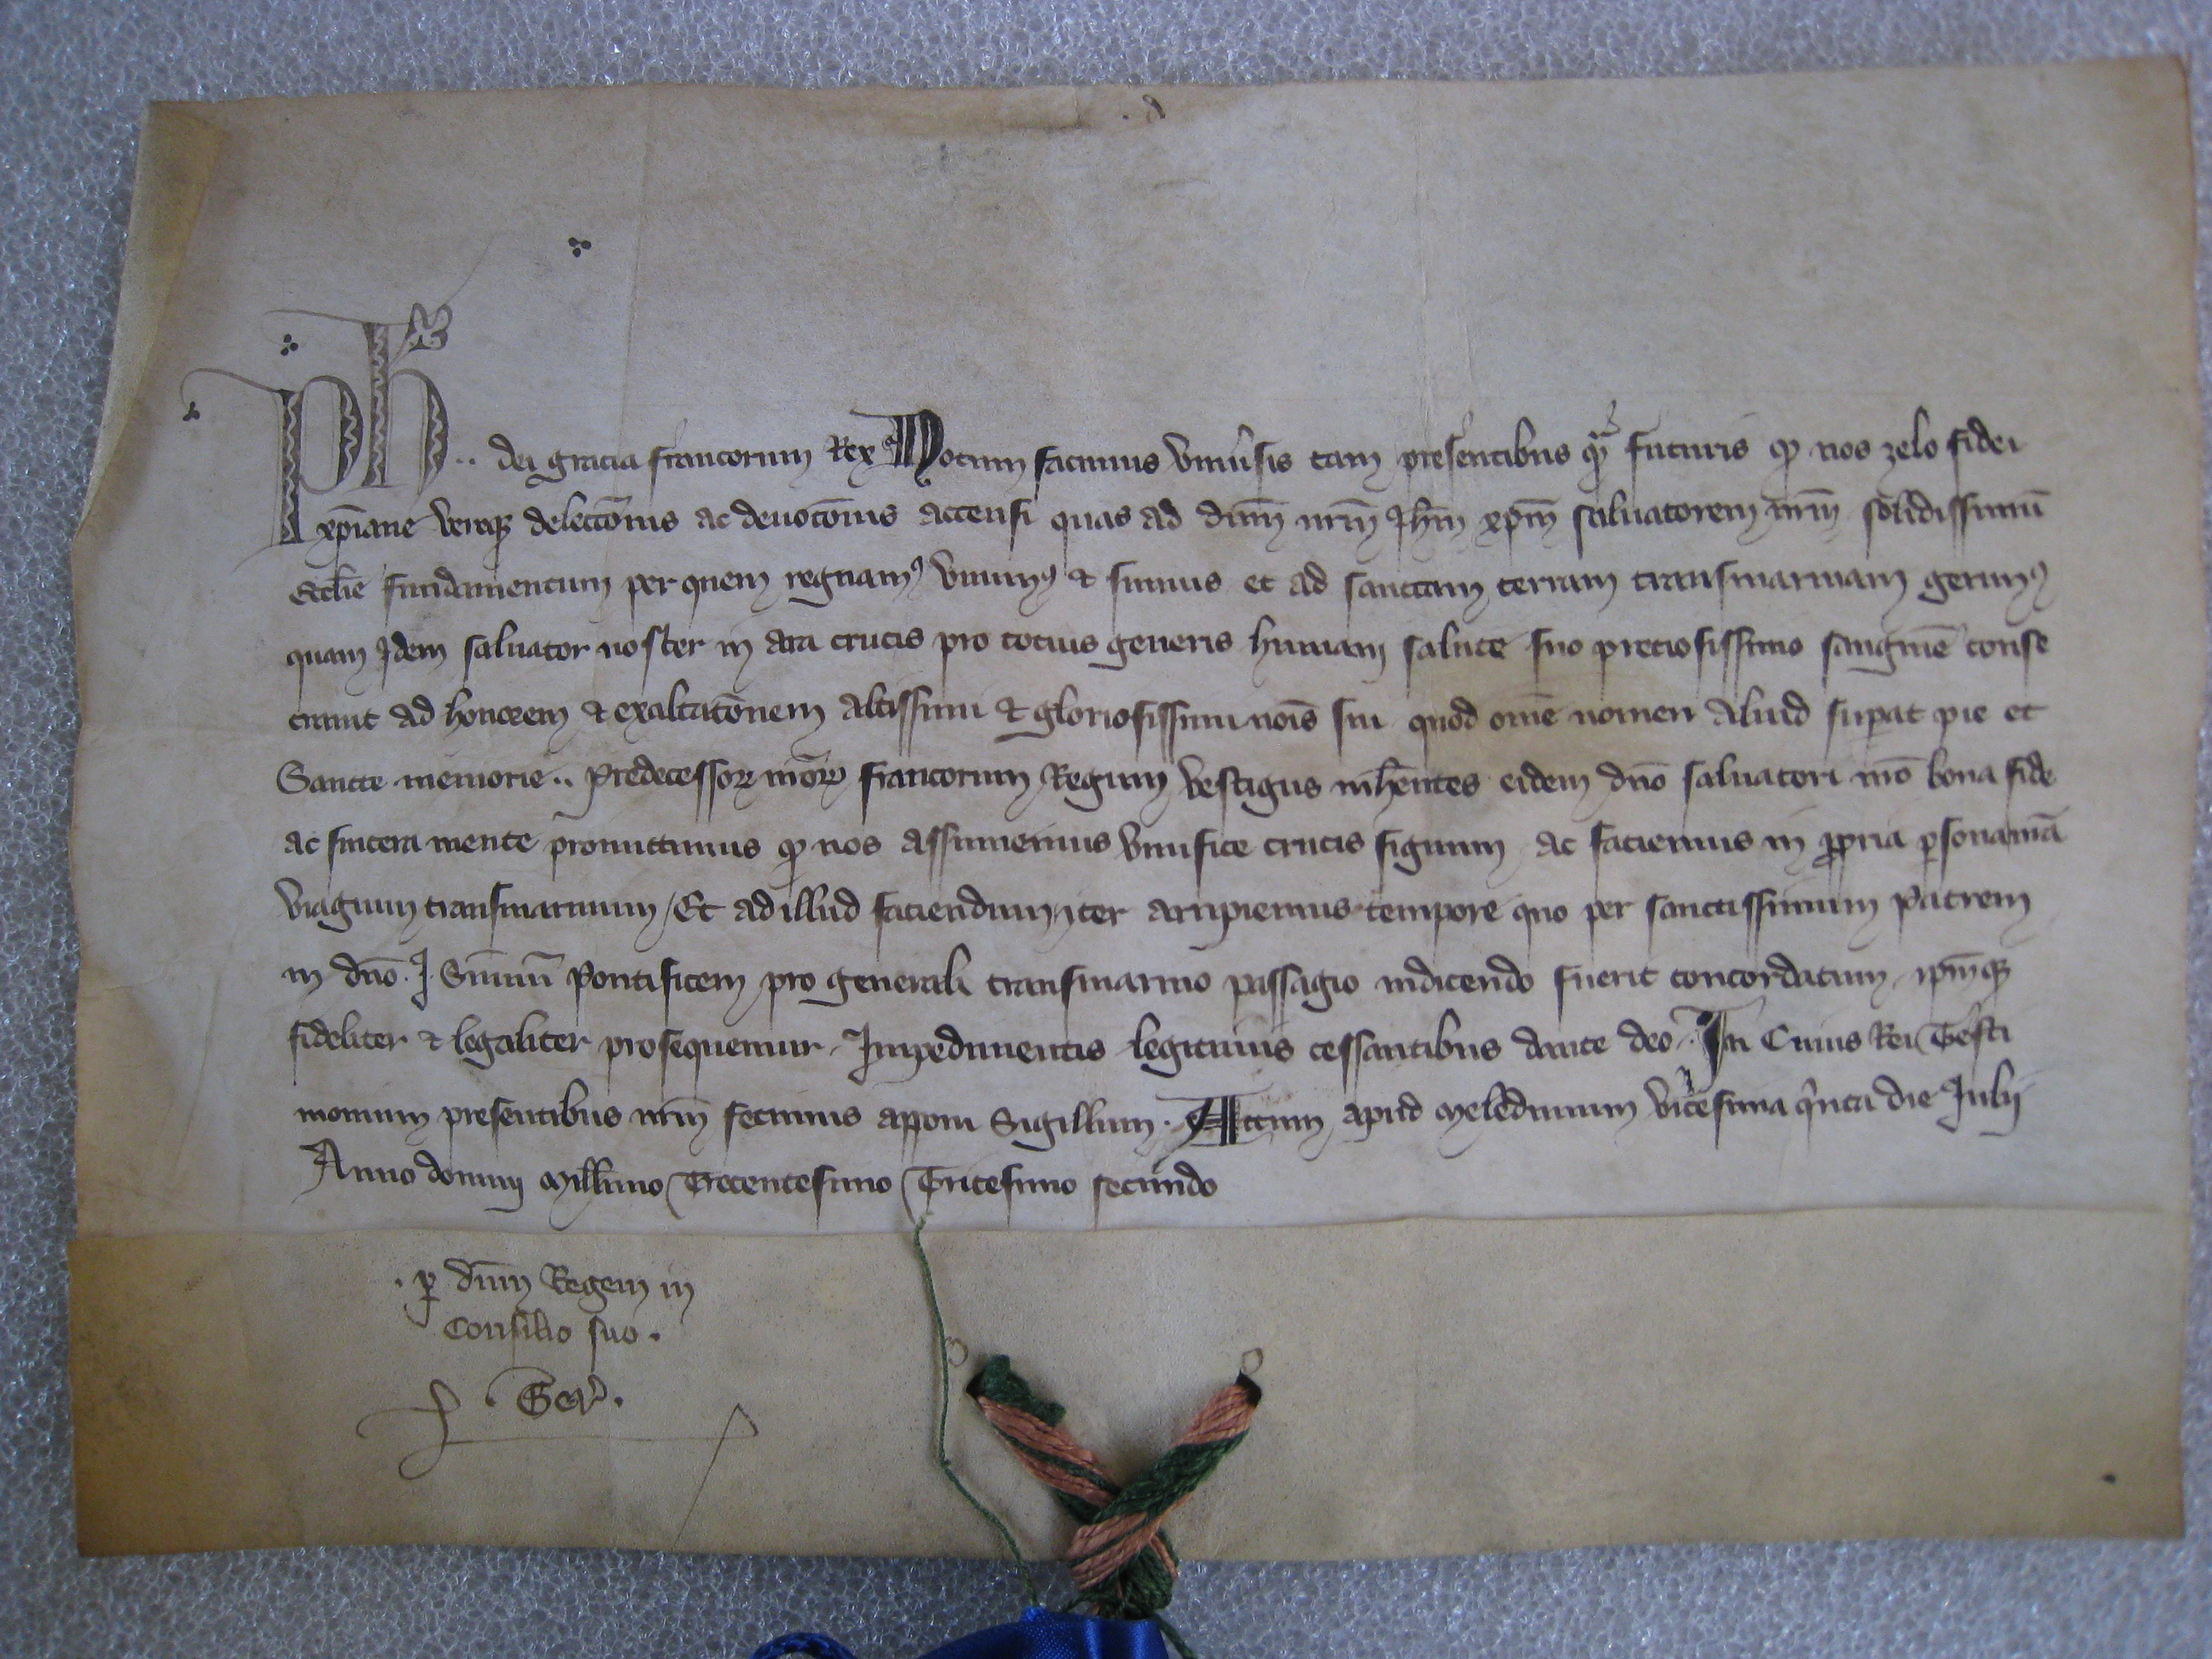 d
Ph .. dei gracia francorum Rex Notum facimus vniusis tam presentibus qm futuris qp nos zelo fidei
xpiane veraqz delectōnis ac deuocōnis accensi quas ad dn̄m nr̄m Jhm̄ xpm̄ saluatorem nr̄m solidissimū
Ecclie fundamentum per quem regnamꝰ viuimꝰ & sumus et ad sanctam terram transmarinam gerimꝰ
quam Idem saluator noster in ara crucis pro totius generis humani salute suo preciosissimo sanguine conse
crauit ad honorem & exaltatōnem altissimi & gloriosissimi noīs sui quod om̄e nomen aliud supat pie et
Sancte memorie .. Predecessoꝝ nr̄oꝝ francorum Regum vestigiis inhrentes eidem dn̄o saluatori nr̄o bona fide
ac sincera mente promittimus qp nos assumemus viuifice crucis signum ac faciemus in ꝓpria ꝑsona nr̄a
viagium transmarinum / Et ad illud faciendum iter arripiemus tempore quo per sanctissimum Patrem
in dn̄o J. Summū Pontificem pro generali transmarino passagio indicendo fuerit concordatum ipm̄qz
fideliter & legaliter prosequemur. Impedimentis legitimis cessantibus dante deo. In Cuius Rei Testi
monium presentibus nr̄m fecimus apponi Sigillum. Actum apud Meledunum vicesima qinta die Iulij
Anno domini Mill̄imo Trecentesimo Tricesimo secundo
. ꝑ dn̄m Regem in
Consilio suo .
. Ger .